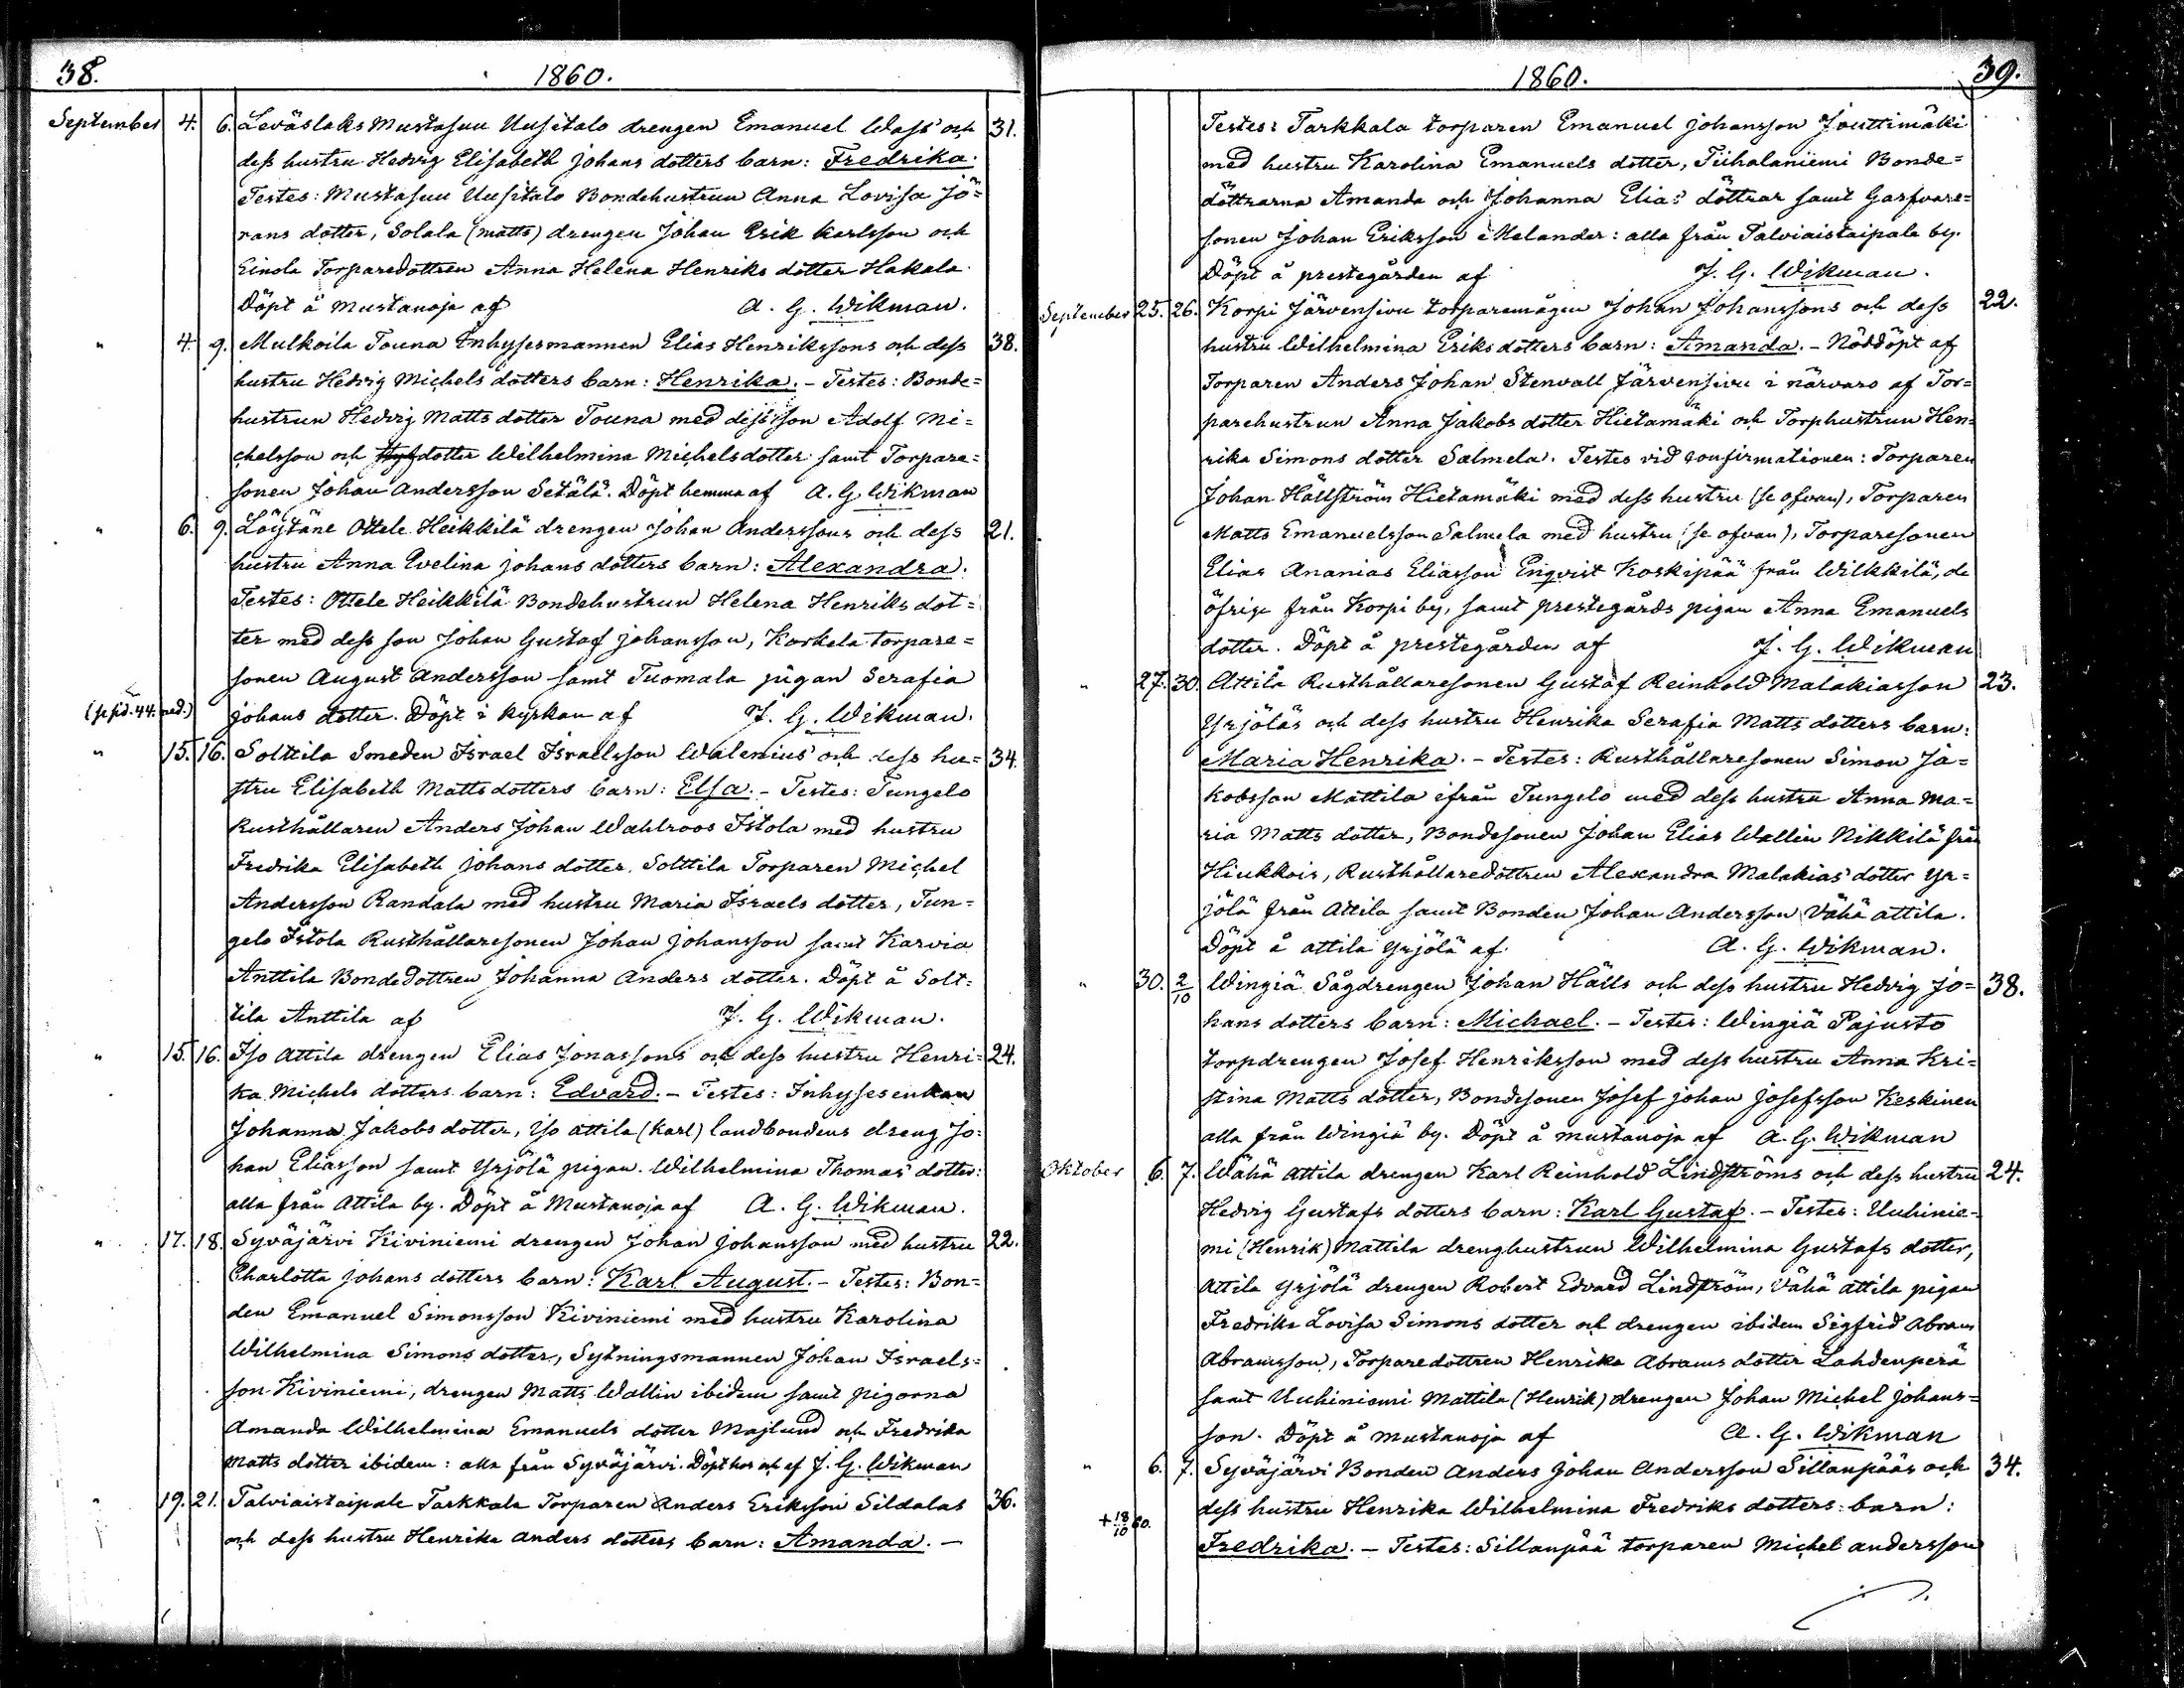 38.
1860.
September 4. 6. Leväslaks Mustasuu Uusitalo drengen Emanuel Wass' och 31.
dess hustru Hedvig Elisabeth Johans dotters barn: Fredrika.
Testes: Mustasuu Uusitalo Bondehustrun Anna Lovisa Jö=
rans dotter, Solala (Matts) drengen Johan Erik Karlsson och
Einola Torparedottren Anna Helena Henriks dotter Hakala.
Döpt å Mustanoja af A. G. Wikman.
" 4. 9. Mulkoila Touna Inhysesmannen Elias Henrikssons och dess 38.
hustru Hedvig Michels dotters barn: Henrika. - Testes: Bonde=
hustrun Hedvig Matts dotter Touna med dess son Adolf Mi=
chelsson och dotter Wilhelmina Michelsdotter samt Torpare=
sonen Johan Andersson Setälä. Döpt hemma af A. G. Wikman
" 6. 9. Löytäne Ottele Heikkilä drengen Johan Anderssons och dess 21.
hustru Anna Evelina Johans dotters barn: Alexandra.
Testes: Ottele Heikkilä Bondehustrun Helena Henriks dot=
ter med dess son Johan Gustaf Johansson, Korkela torpare=
sonen August Andersson samt Tuomala pigan Serafia
(se sid. 44. ned.) Johans dotter. Döpt i kyrkan af J. G. Wikman.
" 15. 16. Solttila Smeden Israel Israelsson Walenius' och dess hu= 34.
stru Elisabeth Matts dotters barn: Elsa. - Testes: Tungelo
Rusthållaren Anders Johan Wahlroos Istola med hustru
Fredrika Elisabeth Johans dotter, Solttila Torparen Michel
Andersson Randala med hustru Maria Israels dotter, Tun=
gelo Istola Rusthållaresonen Johan Johansson samt Karvia
Anttila Bondedottren Johanna Anders dotter. Döpt å Solt=
tila Anttila af J. G. Wikman.
" 15. 16. Iso Attila drengen Elias Jonassons och dess hustru Henri= 24.
ka Michels dotters barn: Edvard. - Testes: Inhysesenkan
Johanna Jakobs dotter, Iso Attila (Karl) landbondens dreng Jo=
han Eliasson samt Yrjölä pigan Wilhelmina Thomas' dotter:
alla från Attila by. Döpt å Mustanoja af A. G. Wikman.
" 17. 18. Syväjärvi Kiviniemi drengen Johan Johansson med hustru 22.
Charlotta Johans dotters barn: Karl August. - Testes: Bon=
den Emanuel Simonsson Kiviniemi med hustru Karolina
Wilhelmina Simons dotter, Sytningsmannen Johan Israels=
son Kiviniemi, drengen Matts Wallin ibidem samt pigorna
Amanda Wilhelmina Emanuels dotter Majlund och Fredrika
Matts dotter ibidem: alla från Syväjärvi. Döpt hos och af J. G. Wikman
" 19. 21. Talviaistaipale Tarkkala Torparen Anders Eriksson Sildalas 36.
och dess hustru Henrika Anders dotters barn: Amanda. -
1860.
39.
Testes: Tarkkala torparen Emanuel Johansson Jouttimäki
med hustru Karolina Emanuels dotter, Tiihalaniemi Bonde=
döttrarna Amanda och Johanna Elias' döttrar samt Garfvare=
sonen Johan Eriksson Melander: alla från Talviaistaipale by.
Döpt å prestegården af J. G. Wikman.
September 25. 26. Korpi Järvensivu torparemågen Johan Johanssons och dess 22.
hustru Wilhelmina Eriks dotters barn: Amanda. - Nöddöpt af
Torparen Anders Johan Stenvall Järvensivu i närvaro af Tor=
parehustrun Anna Jakobs dotter Hietamäki och Torphustrun Hen=
rika Simons dotter Salmela. Testes vid confirmationen: Torparen
Johan Hällström Hietamäki med dess hustru (se ofvan), Torparen
Matts Emanuelsson Salmela med hustru (se ofvan), Torparesonen
Elias Ananias Eliasson Enqvist Koskipää från Wilkkilä, de
öfrige från Korpi by, samt prestegårds pigan Anna Emanuels
dotter. Döpt å prestegården af J. G. Wikman
" 27. 30. Attila Rusthållaresonen Gustaf Reinhold Malakiasson 23.
Yrjöläs och dess hustru Henrika Serafia Matts dotters barn:
Maria Henrika. - Testes: Rusthållaresonen Simon Ja=
kobsson Mattila ifrån Tungelo med dess hustru Anna Ma=
ria Matts dotter, Bondesonen Johan Elias Wallin Nikkilä från
Hiukkois, Rusthållaredottren Alexandra Malakias' dotter Yr=
jölä från Attila samt Bonden Johan Andersson Vähä attila.
Döpt å attila Yrjölä af A. G. Wikman.
" 30. 2/10 Wingiä Sågdrengen Johan Hälls och dess hustru Hedvig Jo= 38.
hans dotters barn: Michael. - Testes: Wingiä Pajusto
torpdrengen Josef Henriksson med dess hustru Anna Kri=
stina Matts dotter, Bondesonen Josef Johan Josefsson Keskinen
alla från Wingiä by. Döpt å Mustanoja af A. G. Wikman
Oktober 6. 7. Wähä Attila drengen Karl Reinhold Lindströms och dess hustru 24.
Hedvig Gustafs dotters barn: Karl Gustaf. - Testes: Uuhinie=
mi (Henrik) Mattila drenghustrun Wilhelmina Gustafs dotter,
Attila Yrjölä drengen Robert Edvard Lindström, Vähä attila pigan
Fredrika Lovisa Simons dotter och drengen ibidem Sigfrid Abram
Abramsson, Torparedottren Henrika Abrams dotter Lahdenperä
samt Uuhiniemi Mattila (Henrik) drengen Johan Michel Johans=
son. Döpt å Mustanoja af A. G. Wikman
" 6. 7. Syväjärvi Bonden Anders Johan Andersson Sillanpääs och 34.
+ 18/10 60. dess hustru Henrika Wilhelmina Fredriks dotters barn:
Fredrika. - Testes: Sillanpää torparen Michel Andersson